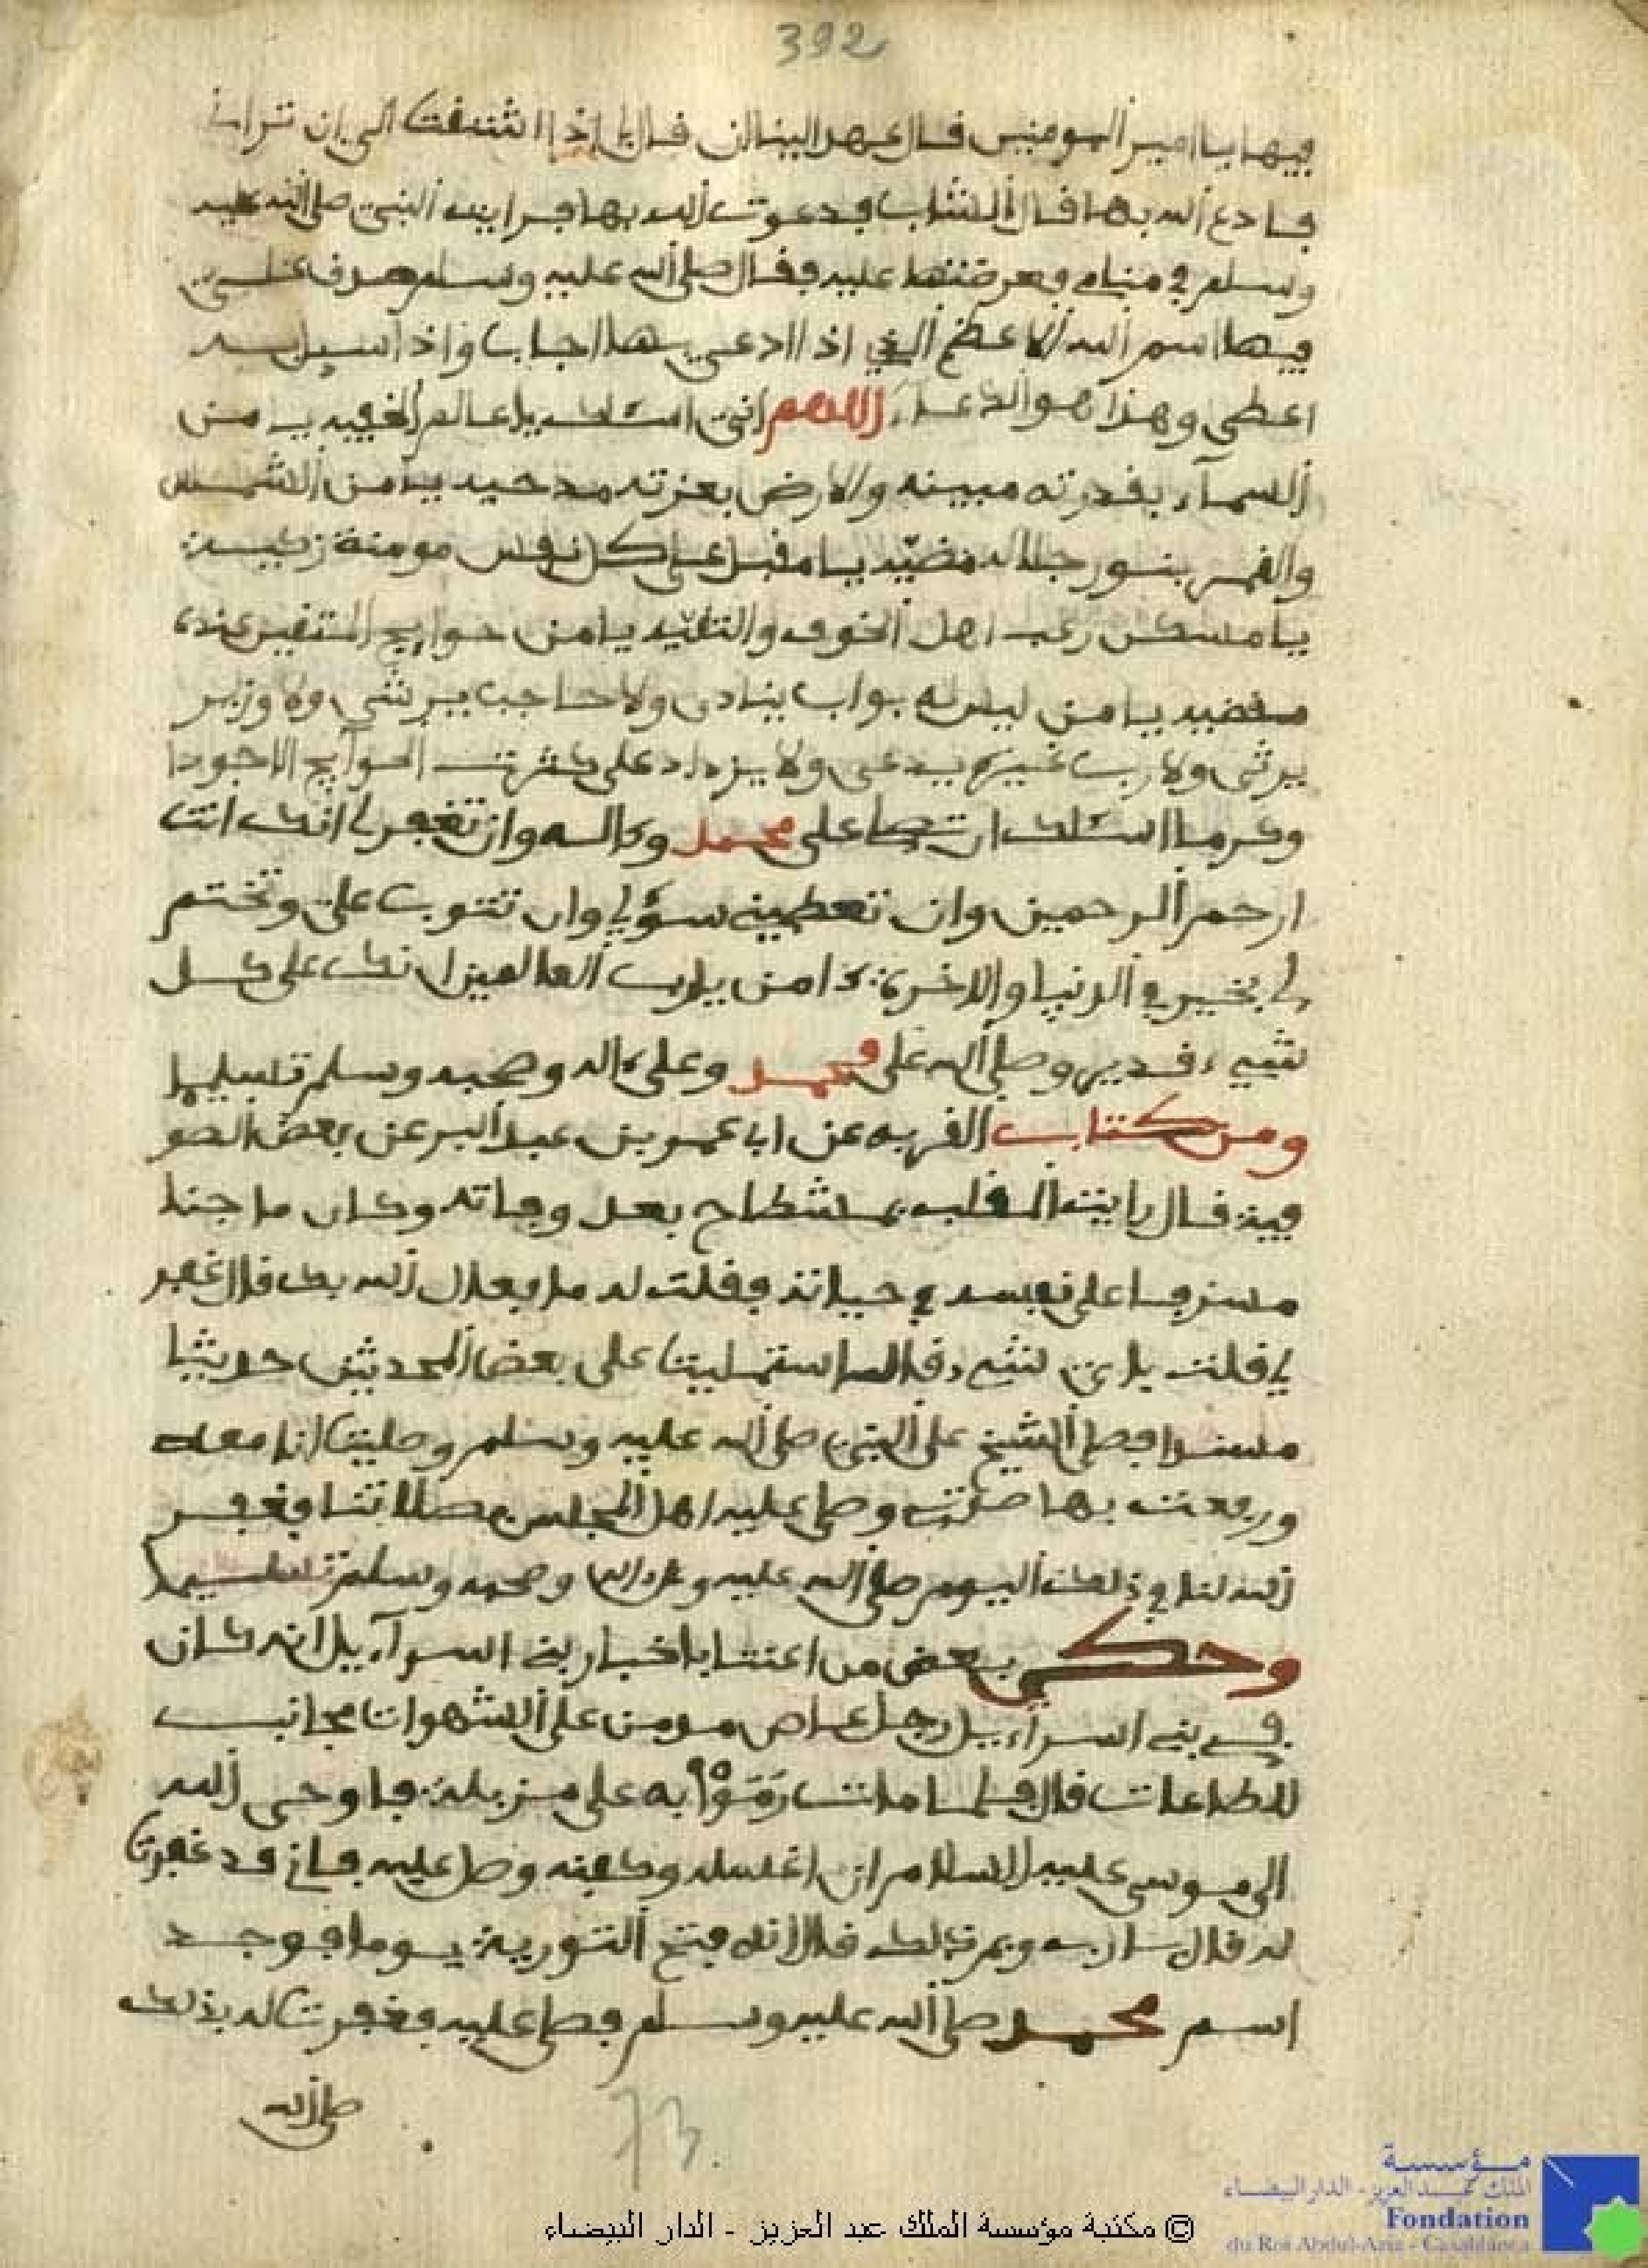 392
فيها يا امير المومنين قال عهد الينا ان قال لي اذا اشتقت الى ان تراني
فادع الله بها قال الشاب فدعوت الله بها فرايت النبي صلى الله عليه
وسلم في منامي فعرضتها عليه فقال صلى الله عليه وسلم صدق علي
فيها اسم الله الاعظم الذي اذا ادعي بها اجاب واذا سيل به
اعطى وهذا هو الدعاء اللهم اني اسئلك يا عالم الخفيه يا من
السماء بقدرته مبينه والارض بعزته مدحيه يا من الشمس
والقمر بنور جلاله مضيه يا مقبل على كل نفس مومنة زكية
يا مسكن رعب اهل الخوف والتقيه يا من حوايج المتقين عنده
مقضيه يا من ليس له بواب ينادى ولا حاجب يرشى ولا وزير
يرشى ولا رب غيره يدعى ولا يزداد على كثرت الحوآيج الا جودا
وكرما اسئلك ان تصل على محمد وءاله وان تغفر لي انك انت
ارحم الرحمين وان تعطيني سؤلي وان تتوب علي وتختم
لي بخير في الدنيا والاخرة ءامن يا رب العالمين انك على كل
شيء قدير وصلى الله على محمد وعلى ءاله وصحبه وسلم تسليما
ومن كتاب القربه عن ابي عمر بن عبد البر عن بعض الصو
فية قال رايت الملقب بمشطاح بعد وفاته وكان ماجنا
مسرفا على نفسه في حياته فقلت له ما فعل الله بك قال غفر
لي قلت باي شيء قال استمليت على بعض المحدثين حديثا
مسندا فصلى الشيخ على النبي صلى الله عليه وسلم وصليت انا معه
ورفعت بها صوتي وصلى عليه اهل المجلس بصلاتنا فغفر
الله لنا في ذلك اليوم صلى الله عليه وعلى ءاله وصحبه وسلم تسليما
وحكي بعض من اعتنا باخبار بني اسرآءيل انه كان
في بني اسرآءيل رجل عاص مومن على الشهوات مجانب
للطاعات قال فلما مات رموا به على مزبلة فاوحى الله
الى موسى عليه السلام ان اغسله وكفنه وصل عليه فاني قد غفرت
له قال يا رب وبم ذلك قال انه فتح التورية يوما فوجد
اسم محمد صلى الله عليه وسلم فصلى عليه فغفرت له بذلك
صلى الله
73.
مؤسسة
الملك عبد العزيز - الدار البيضاء
Fondation
du Roi Abdul-Aziz - Casablanca
© مكتبة مؤسسة الملك عبد العزيز - الدار البيضاء